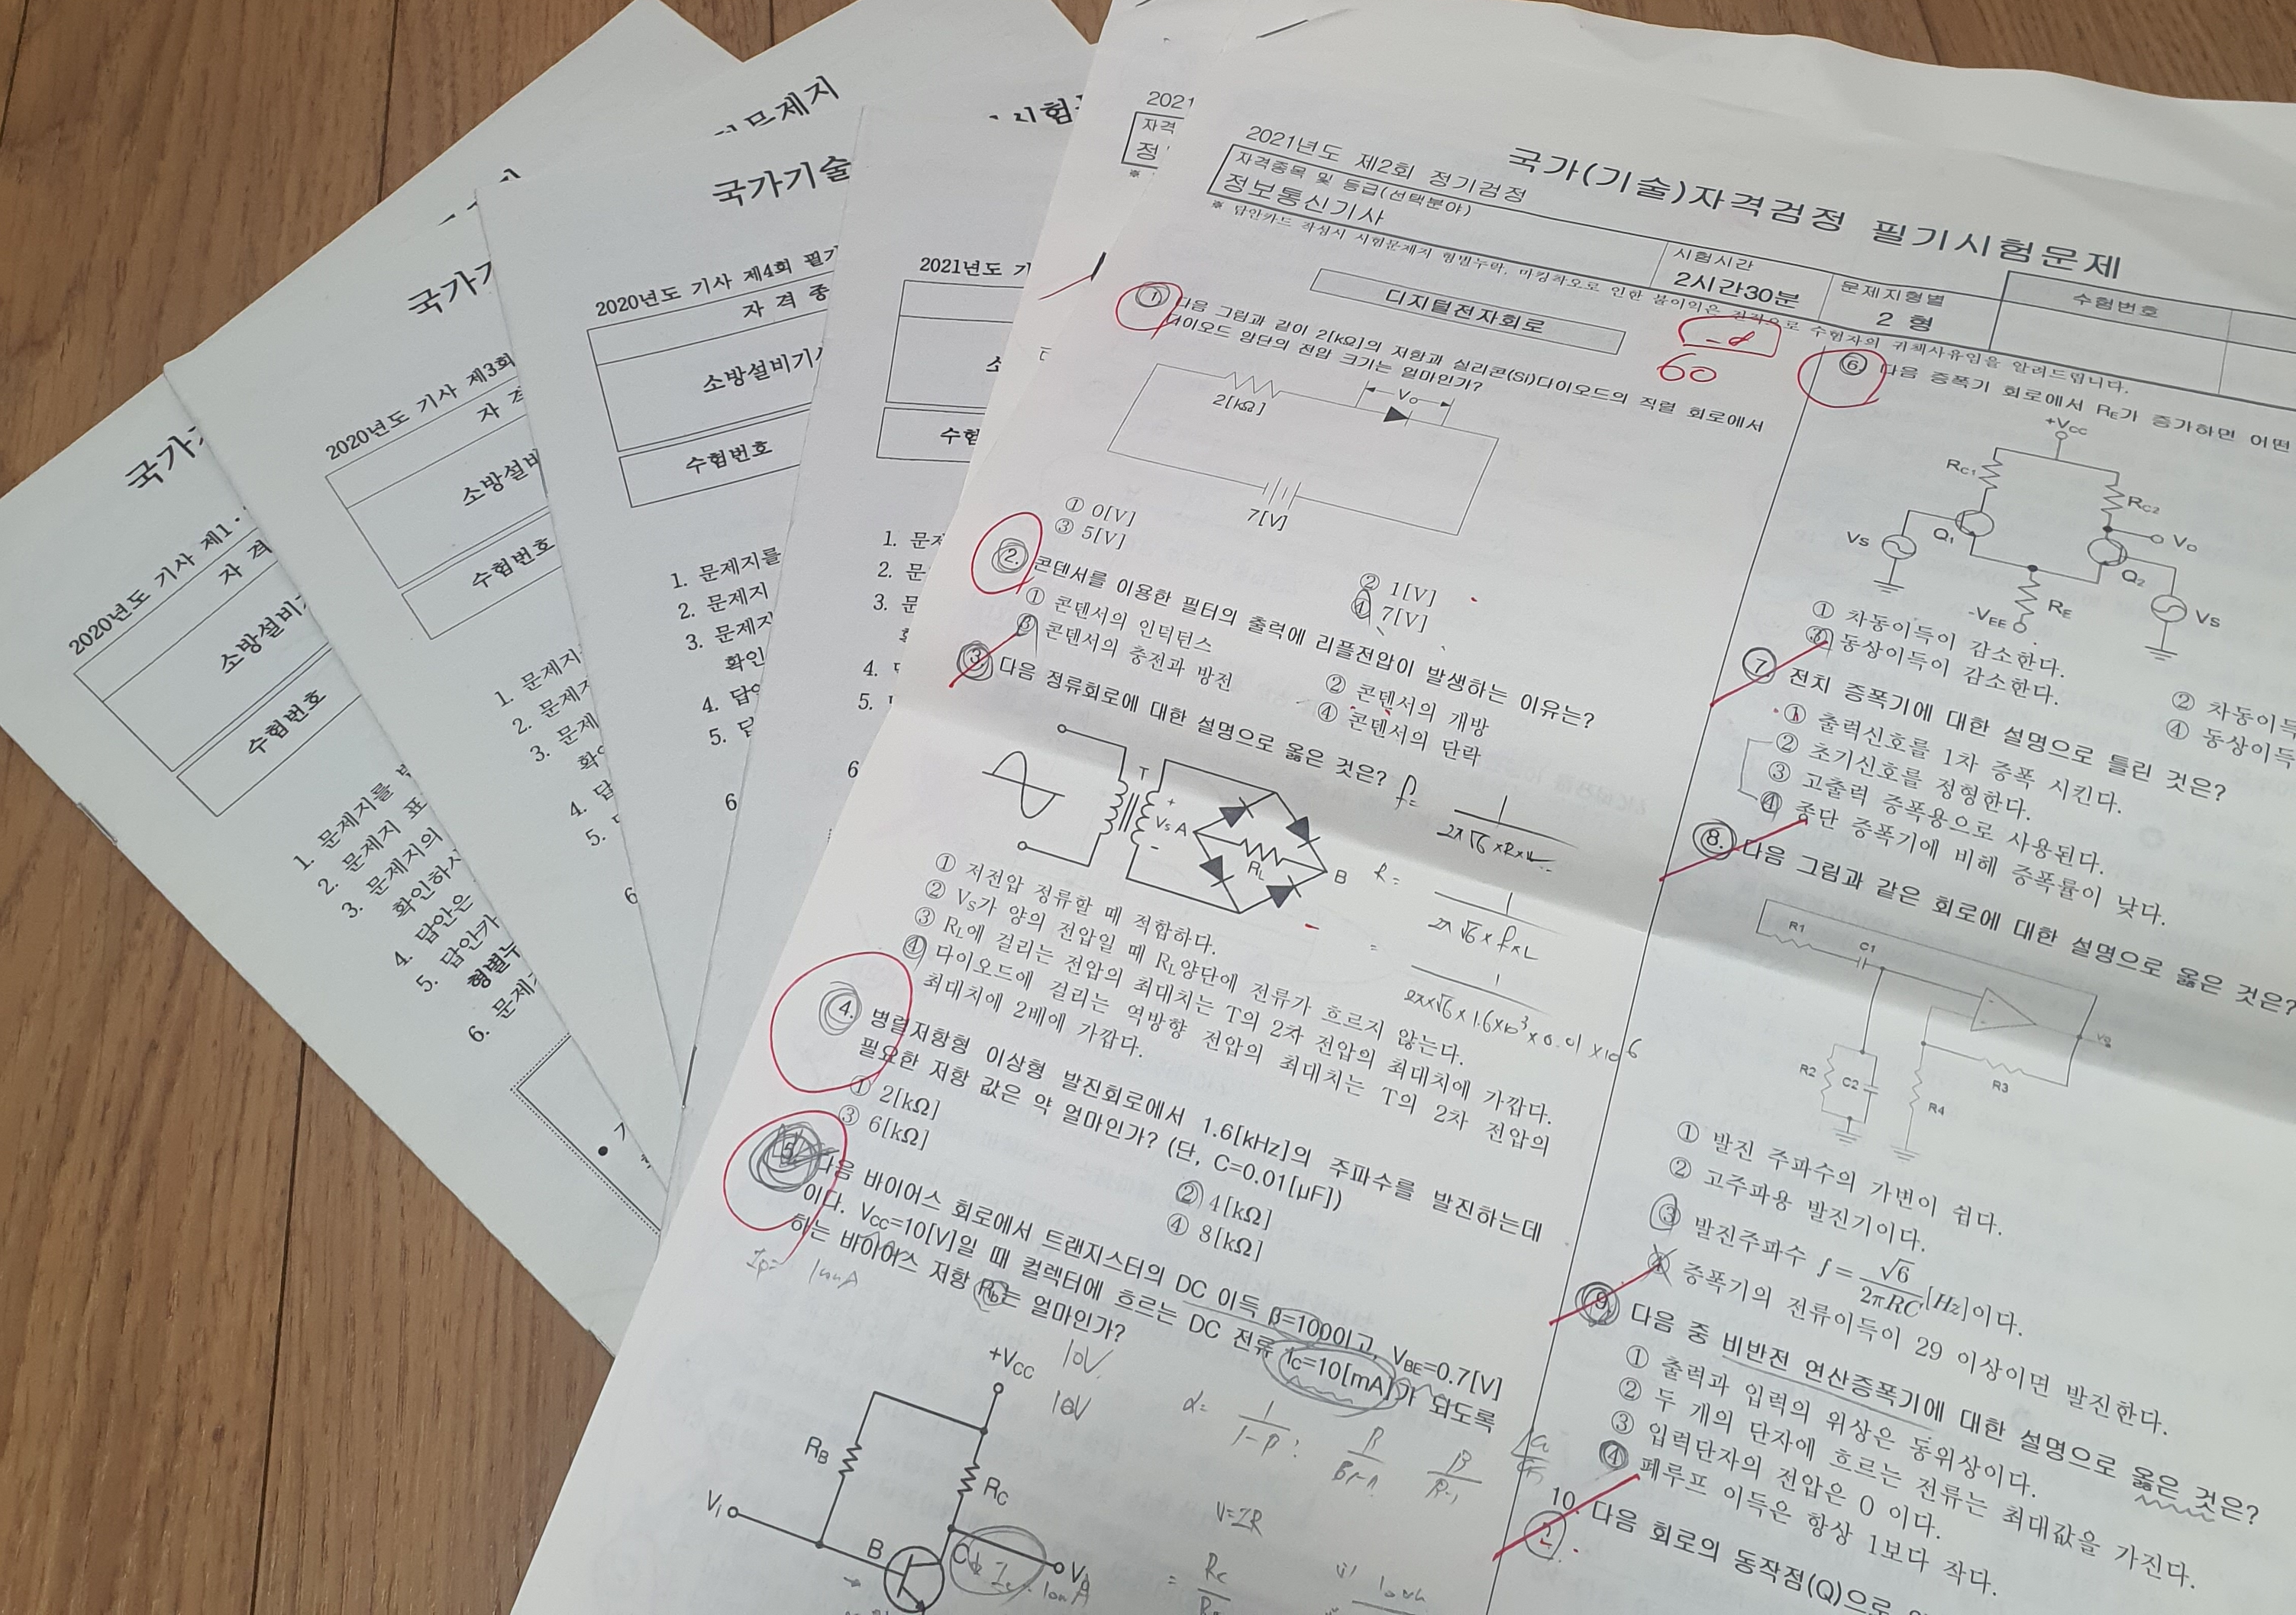 문제지
시험
국가기술
국가
국가
2020년도 기사 제1·
자 격
소방설비기
수험번호
1. 문제지를
2. 문제지 표
3. 문제지의
확인하시
4. 답안은
5. 답안카
형별누
6. 문제
2020년도 기사 제3회
자 격
소방설비
수험번호
1. 문제지
2. 문제
3. 문제
확
4. 답
5.
6
2020년도 기사 제4회 필기
자 격 종
소방설비기사
수험번호
1. 문제지를
2. 문제지
3. 문제지
확인
4. 답
5. 답
6
2021년도 기
수험
1. 문제
2. 문
3. 문
4.
5.
6
2021
자격
정
※
2021년도 제2회 정기검정
국가(기술)자격검정 필기시험문제
자격종목 및 등급(선택분야)
정보통신기사
시험시간
2시간30분
문제지형별
2 형
수험번호
※ 답안카드 작성시 시험문제지 형별누락, 마킹착오로 인한 불이익은 전적으로 수험자의 귀책사유임을 알려드립니다.
디지털전자회로
60
1. 다음 그림과 같이 2[kΩ]의 저항과 실리콘(Si)다이오드의 직렬 회로에서
다이오드 양단의 전압 크기는 얼마인가?
2[kΩ]
Vo
7[V]
① 0[V]
② 1[V]
③ 5[V]
④ 7[V]
2. 콘덴서를 이용한 필터의 출력에 리플전압이 발생하는 이유는?
① 콘덴서의 인덕턴스
② 콘덴서의 개방
③ 콘덴서의 충전과 방전
④ 콘덴서의 단락
3. 다음 정류회로에 대한 설명으로 옳은 것은?
T
+
Vs A
-
RL
B
① 저전압 정류할 때 적합하다.
② Vs가 양의 전압일 때 RL양단에 전류가 흐르지 않는다.
③ RL에 걸리는 전압의 최대치는 T의 2차 전압의 최대치에 가깝다.
④ 다이오드에 걸리는 역방향 전압의 최대치는 T의 2차 전압의
최대치에 2배에 가깝다.
4. 병렬저항형 이상형 발진회로에서 1.6[kHz]의 주파수를 발진하는데
필요한 저항 값은 약 얼마인가? (단, C=0.01[μF])
① 2[kΩ]
② 4[kΩ]
③ 6[kΩ]
④ 8[kΩ]
5. 다음 바이어스 회로에서 트랜지스터의 DC 이득 β=100이고, VBE=0.7[V]
이다. VCC=10[V]일 때 컬렉터에 흐르는 DC 전류 IC=10[mA]가 되도록
하는 바이어스 저항 는 얼마인가?
+VCC
10V
10V
RB
RC
V1
B
V=IR
6. 다음 증폭기 회로에서 RE가 증가하면 어떤
+VCC
RC1
RC2
VS
Q1
VO
Q2
RE
-VEE
VS
① 차동이득이 감소한다.
② 차동이득
③ 동상이득이 감소한다.
④ 동상이득
7. 전치 증폭기에 대한 설명으로 틀린 것은?
① 출력신호를 1차 증폭 시킨다.
② 초기신호를 정형한다.
③ 고출력 증폭용으로 사용된다.
④ 종단 증폭기에 비해 증폭률이 낮다.
8. 다음 그림과 같은 회로에 대한 설명으로 옳은 것은?
R1
C1
R2
C2
R3
R4
① 발진 주파수의 가변이 쉽다.
② 고주파용 발진기이다.
③ 발진주파수 f=√6/2πRC[Hz]이다.
④ 증폭기의 전류이득이 29 이상이면 발진한다.
9. 다음 중 비반전 연산증폭기에 대한 설명으로 옳은 것은?
① 출력과 입력의 위상은 동위상이다.
② 두 개의 단자에 흐르는 전류는 최대값을 가진다.
③ 입력단자의 전압은 0 이다.
④ 폐루프 이득은 항상 1보다 작다.
10. 다음 회로의 동작점(Q)으로